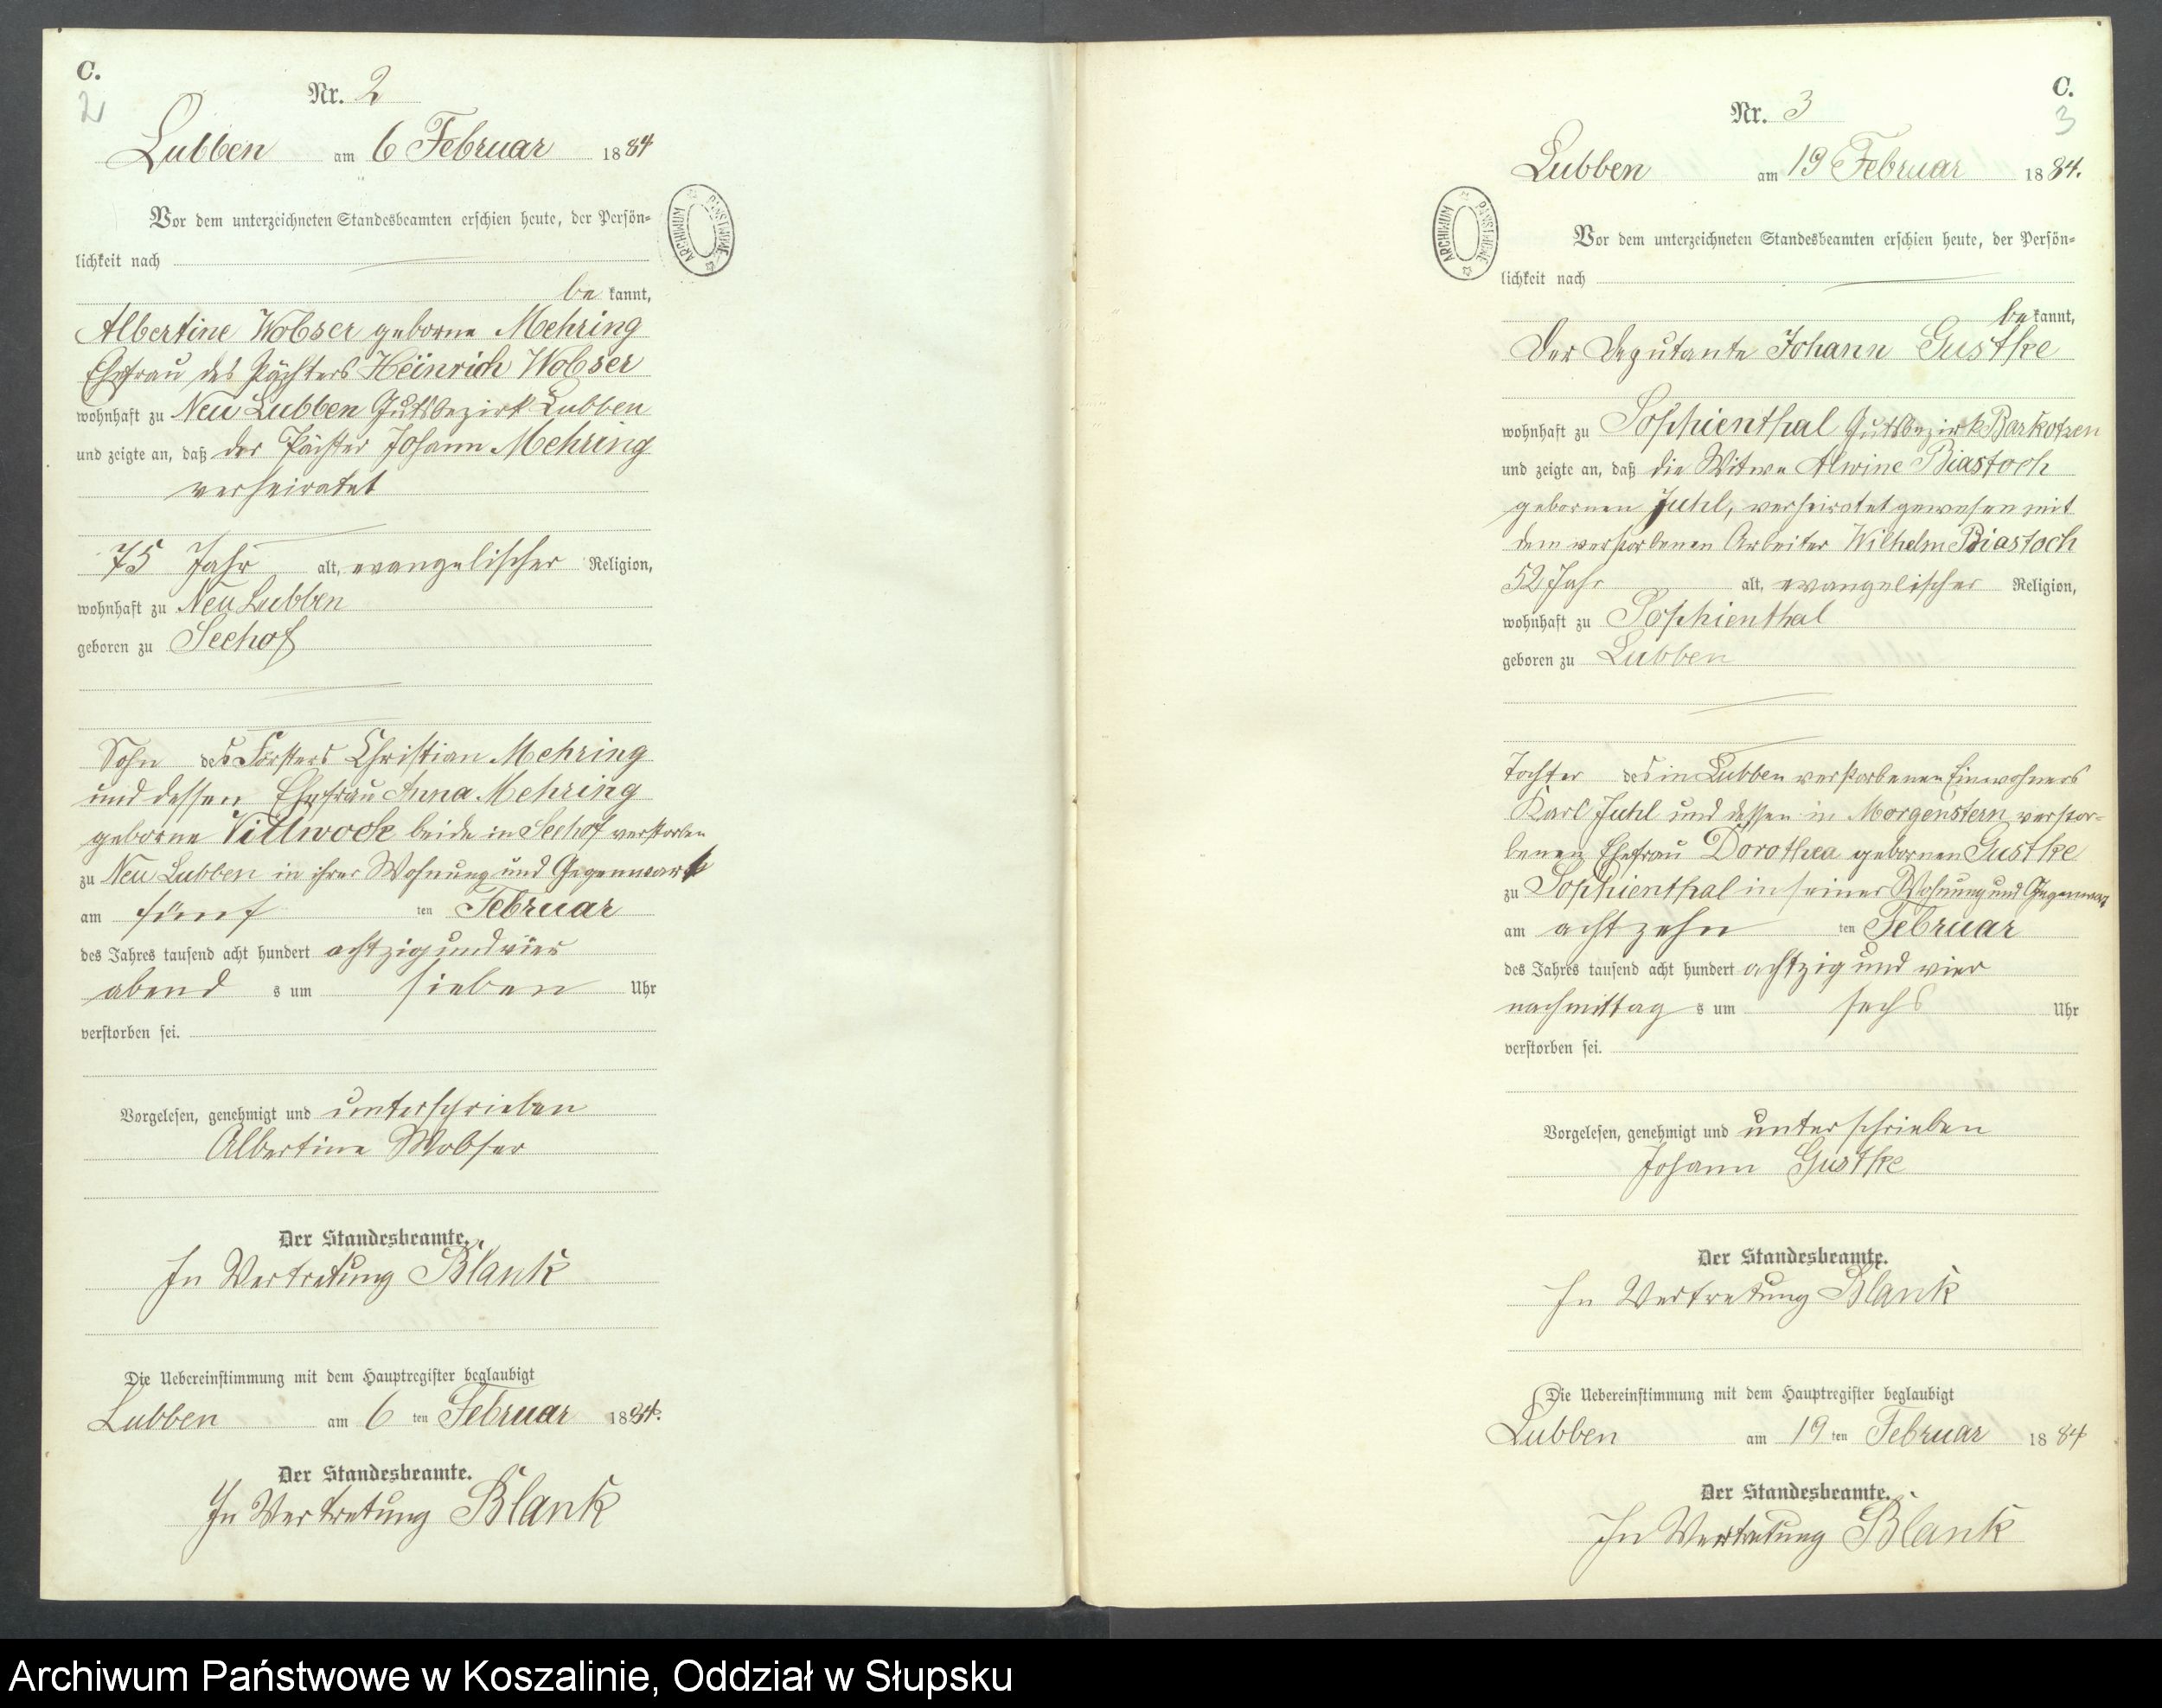 C.
2
Nr. 2
Lubben am 6 Februar 1884
Vor dem unterzeichneten Standesbeamten erschien heute, der Persön-
lichkeit nach
be kannt,
Albertine Wobser geborne Mehring
Ehefrau des Pächters Heinrich Wobser
wohnhaft zu Neu Lubben Gutsbezirk Lubben
und zeigte an, daß der Pächter Johann Mehring
verheiratet
75 Jahr alt, evangelischer Religion,
wohnhaft zu Neu Lubben
geboren zu Seehof
Sohn des Försters Christian Mehring
und dessen Ehefrau Anna Mehring
geborne Villwock beide in Seehof verstorben
zu Neu Lubben in ihrer Wohnung und Gegenwart
am fünf ten Februar
des Jahres tausend acht hundert achtzig und vier
abend s um sieben Uhr
verstorben sei.
Vorgelesen, genehmigt und unterschrieben
Albertine Wobser
Der Standesbeamte.
In Vertretung Blank
Die Uebereinstimmung mit dem Hauptregister beglaubigt
Lubben am 6 ten Februar 1884.
Der Standesbeamte.
In Vertretung Blank
ARCHIWUM PAŃSTWOWE
C.
3
Nr. 3
Lubben am 19 Februar 1884.
Vor dem unterzeichneten Standesbeamten erschien heute, der Persön-
lichkeit nach
be kannt,
Der Deputante Johann Gustke
wohnhaft zu Sophienthal Gutsbezirk Barkotzen
und zeigte an, daß die Witwe Alwine Biastoch
gebornen Juhl, verheiratet gewesen mit
dem verstorbenen Arbeiter Wilhelm Biastoch
52 Jahr alt, evangelischer Religion,
wohnhaft zu Sophienthal
geboren zu Lubben
Tochter des in Lubben verstorbenen Einwohners
Karl Juhl und dessen in Morgenstern verstor-
benen Ehefrau Dorothea gebornen Gustke
zu Sophienthal in seiner Wohnung und Gegenwart
am achtzehn ten Februar
des Jahres tausend acht hundert achtzig und vier
nachmittag s um sechs Uhr
verstorben sei.
Vorgelesen, genehmigt und unterschrieben
Johann Gustke
Der Standesbeamte.
In Vertretung Blank
Die Uebereinstimmung mit dem Hauptregister beglaubigt
Lubben am 19 ten Februar 1884
Der Standesbeamte.
In Vertretung Blank
ARCHIWUM PAŃSTWOWE
Archiwum Państwowe w Koszalinie, Oddział w Słupsku